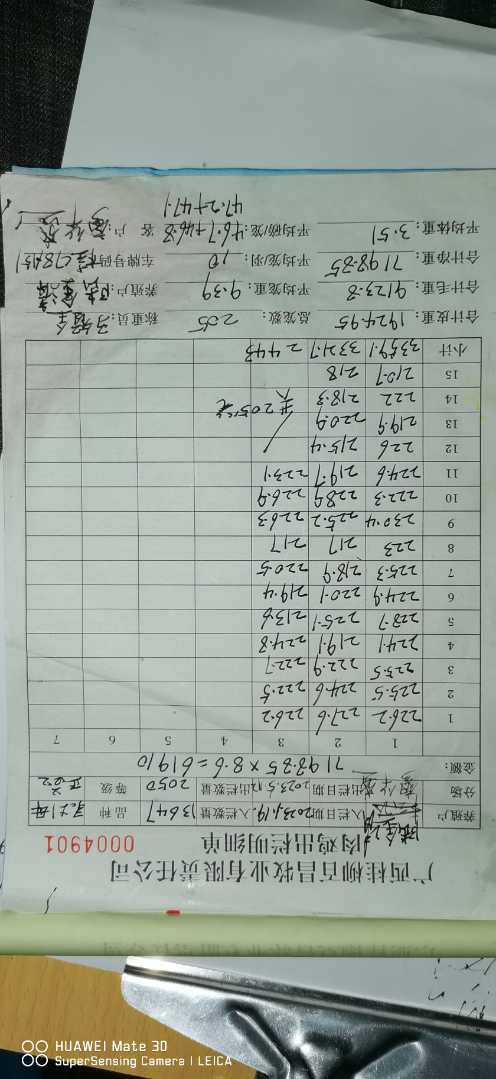 广西桂柳百昌牧业有限责任公司
肉鸡出栏明细单 0004901
养殖户 入栏日期 2023.1.19 入栏数量 13647 品种
分场 出栏日期 2023.5.12 出栏数量 2050 等级
金额: 7198.85 × 8.6 = 61910
1 2 3 4 5 6 7
1 226.2 227.6 226.2
2 225.5 224.6 222.5
3 223.5 222.9 222.7
4 224.1 219.1 224.8
5 228.7 225.1 213.6
6 224.9 220.1 219.4
7 225.3 218.9 220.5
8 223 217 217
9 230.4 225.2 226.3
10 222.3 228.9 226.9
11 224.6 219.7 223.1
12 226 215.4
13 219.9 220.9
14 222 218.3 共205笼
15 210.7 218
小计 3359.1 3321.7 2443
合计皮重: 1924.95 总笼数: 205 称重员:
合计毛重: 9123.8 平均笼重: 9.39 养殖户:
合计净重: 7198.85 平均笼/羽: 10 车牌号码:
平均体重: 3.51 平均磅/笼: 46.7+46.8 客 户:
47.2+47.1
HUAWEI Mate 30
SuperSensing Camera | LEICA